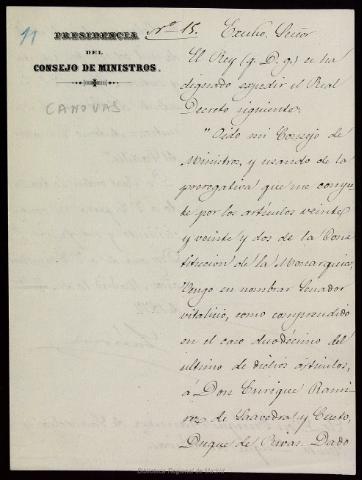 11
PRESIDENCIA
DEL
CONSEJO DE MINISTROS.
CANOVAS
Nº 15.
Excmo. Señor
El Rey (q. D. g.) se ha
dignado expedir el Real
Decreto siguiente:
"Oido mi Consejo de
Ministros, y usando de la
prerogativa que me compe-
te por los artículos veinte
y veinte y dos de la Cons-
titucion de la Monarquia,
Vengo en nombrar Senador
vitalicio, como comprendido
en el caso duodécimo del
ultimo de dichos artículos,
á Don Enrique Rami-
rez de Saavedra y Cueto,
Duque de Rivas. Dado
Biblioteca Regional de Madrid